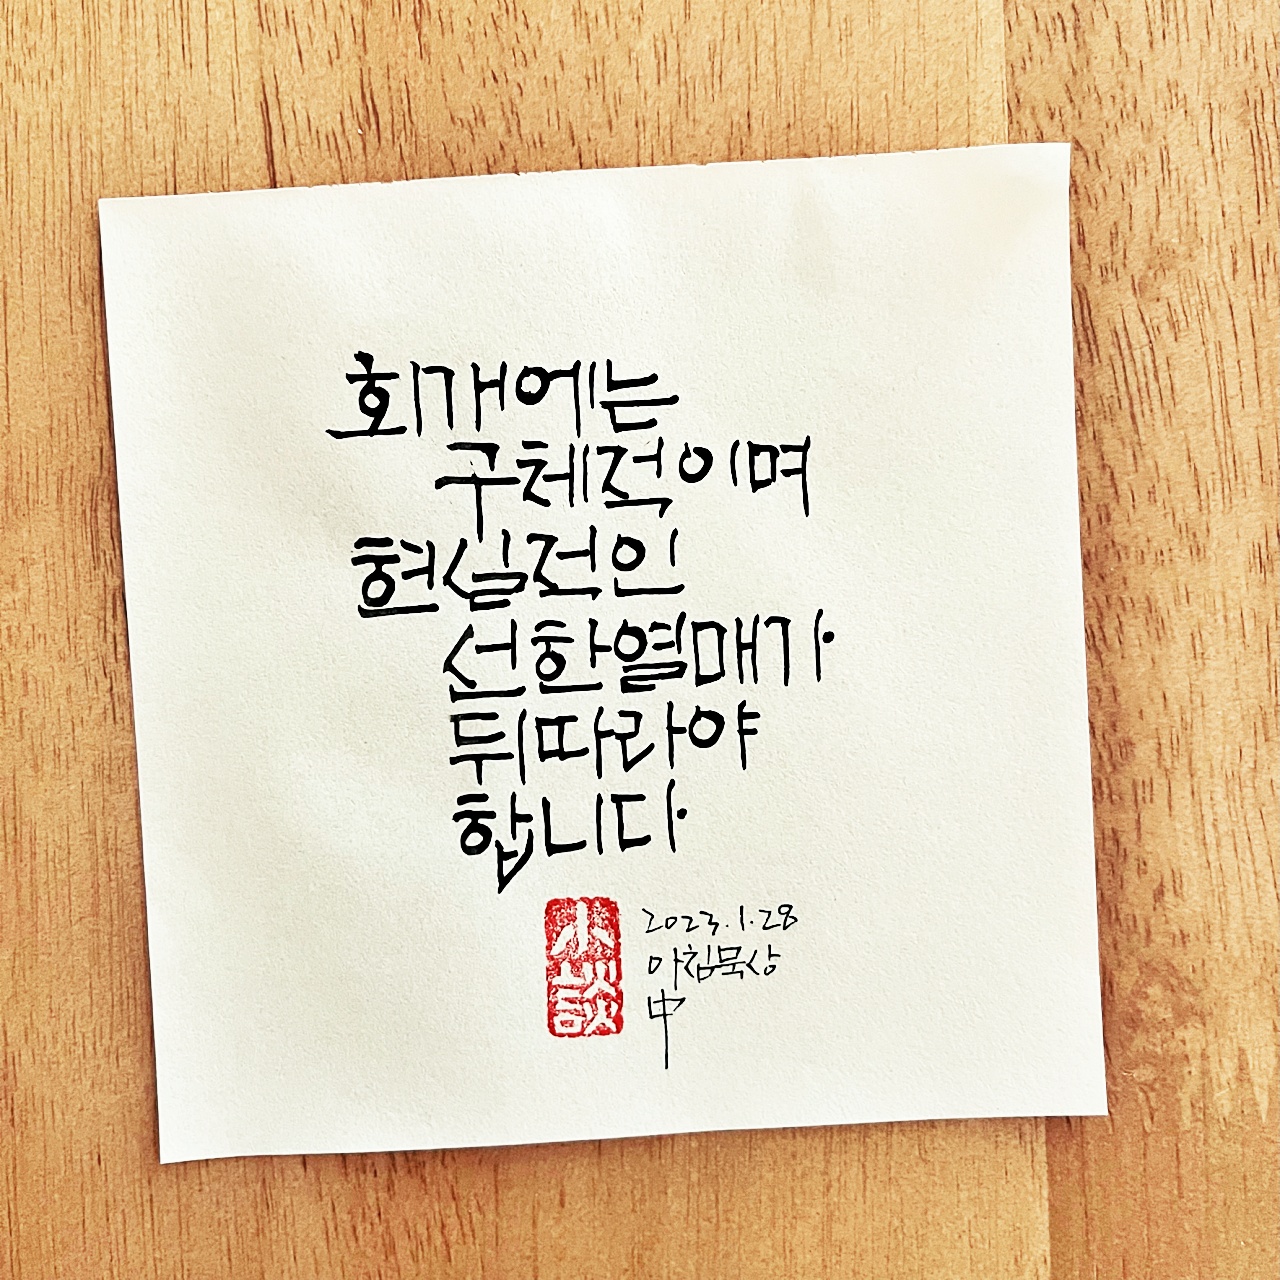 회개에는
구체적이며
현실적인
선한열매가
뒤따라야
합니다
小談
2023.1.28
아침묵상
中